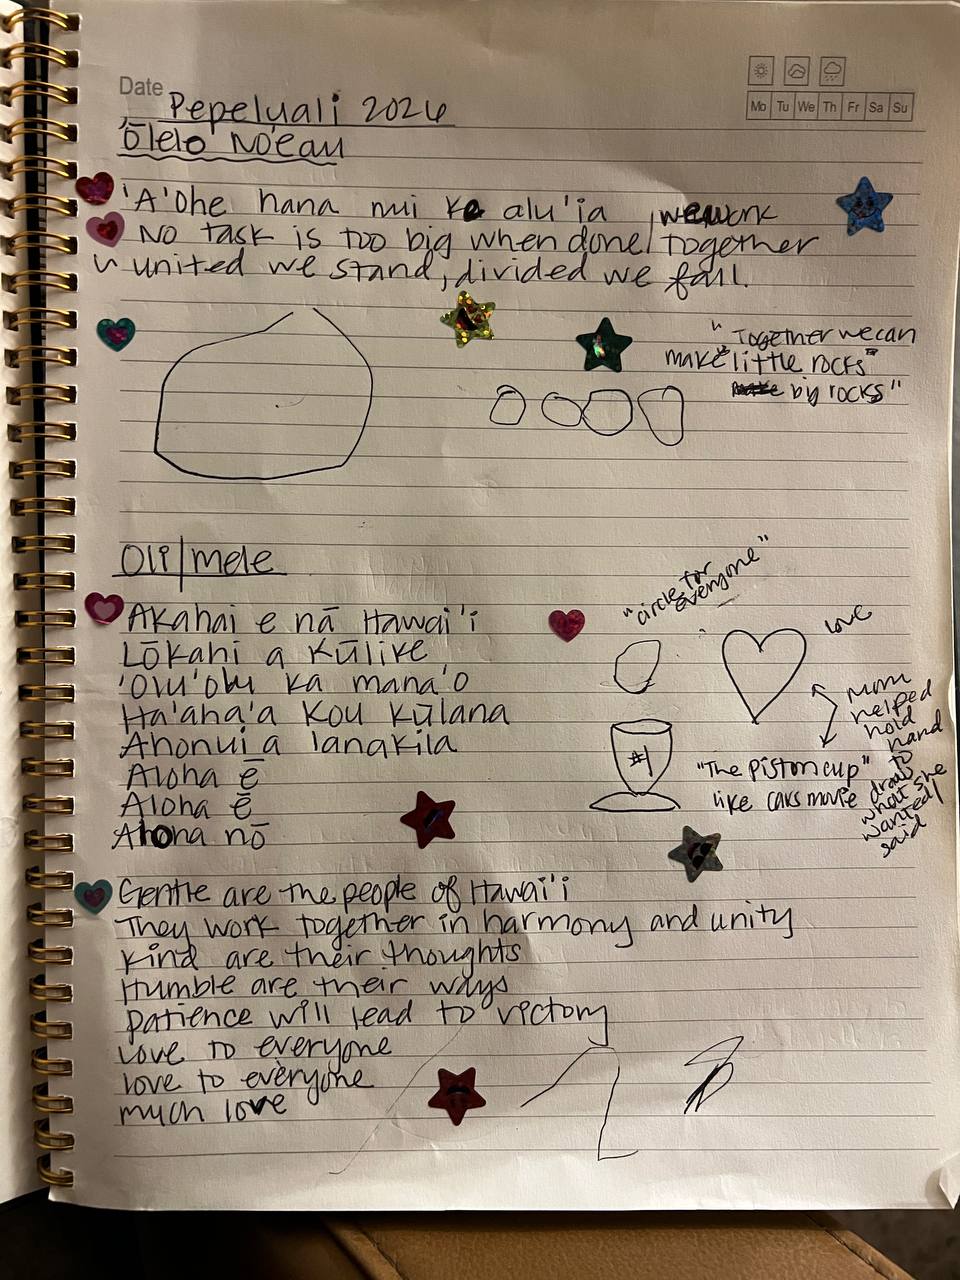 Date Pepeluali 2026
'Ōlelo No'eau
Mo Tu We Th Fr Sa Su
'A'ohe hana nui ke alu'ia
No task is too big when done together
we work
united we stand, divided we fall.
"Together we can
make "little rocks"
big rocks"
Oli/mele
"circle for
everyone"
Akahai e nā Hawai'i
Lōkahi a Kūlike
'Olu'olu ka mana'o
Ha'aha'a kou kūlana
Ahonui a lanakila
Aloha ē
Aloha ē
Aloha nō
love
#1
"The piston cup"
like cars movie
Mom
helped
hold
hand
to
draw
what she
wanted/
said
Gentle are the people of Hawai'i
They work together in harmony and unity
Kind are their thoughts
Humble are their ways
Patience will lead to victory
Love to everyone
love to everyone
much love